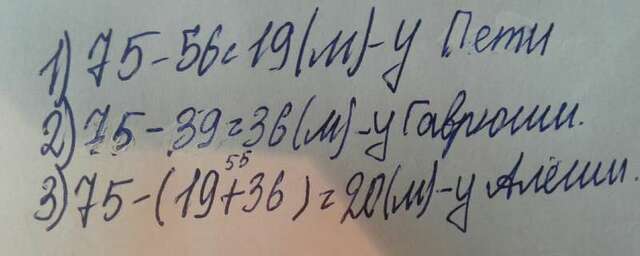 1) 75-56=19(м)-у Пети
2) 75-39=36(м)-у Гаврюши.
55
3) 75-(19+36)=20(м)-у Алёши.